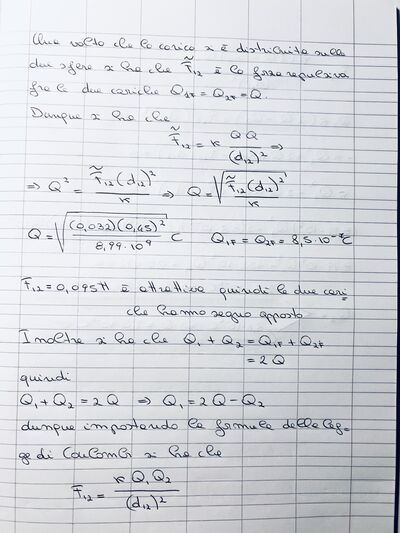 Una volta che la carica si è distribuita sulle
due sfere si ha che F̃̃₁₂ è la forza repulsiva
fra le due cariche Q₁f = Q₂f = Q.
Dunque si ha che
F̃̃₁₂ = κ QQ / (d₁₂)² ⇒
⇒ Q² = F̃̃₁₂ (d₁₂)² / κ ⇒ Q = √(F̃̃₁₂ (d₁₂)² / κ)
Q = √((0,032)(0,45)² / 8,99·10⁹) C Q₁f = Q₂f = 8,5·10⁻⁷C
F₁₂ = 0,095N è attrattiva quindi le due cari-
che hanno segno opposto
Inoltre si ha che Q₁ + Q₂ = Q₁f + Q₂f
= 2Q
quindi
Q₁ + Q₂ = 2Q ⇒ Q₁ = 2Q - Q₂
dunque impostando la formula della leg-
ge di Coulomb si ha che
F₁₂ = κ Q₁ Q₂ / (d₁₂)²